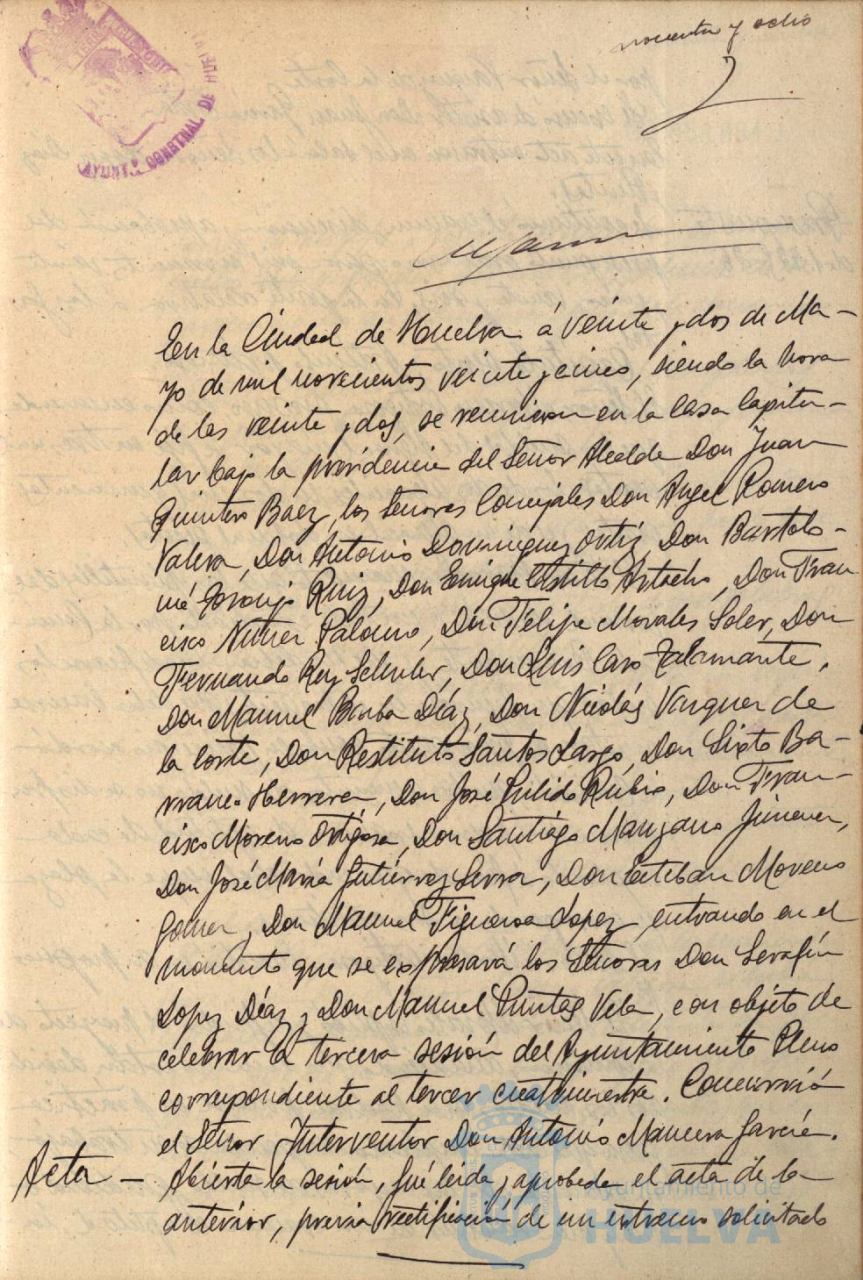 noventa y ocho
AYUNTA CONSTNAL DE HUELV
En la Ciudad de Huelva á veinte y dos de Ma-
yo de mil novecientos veinte y cinco, siendo la hora
de las veinte y dos, se reunieron en la Casa Capitu-
lar bajo la presidencia del Señor Alcalde Don Juan
Quintero Baez, los Señores Concejales Don Angel Romero
Valera, Don Antonio Dominguez Ortiz, Don Bartolo-
mé Naranjo Ruiz, Don Enrique Castilló Artacho, Don Fran
cisco Nuñer Palomo, Don Felipe Morales Soler, Don
Fernando Rey Don Luis Caro Talamante,
Don Manuel Barba Díaz, Don Nicolás Vazquer de
la Corte, Don Restituto Santos Largo, Don Sixto Ba-
rranco Herrera, Don José Pulido Rubio, Don Fran-
cisco Moreno Ortigosa, Don Santiago Manzano Jimener,
Don José María Gutiérrez Serra, Don Esteban Moreno
Gomer y Don Manuel Figueroa Lopez, entrando en el
momento que se expresará los Señores Don Serafín
Lopez Díaz y Don Manuel Puntas Vela, con objeto de
celebrar la tercera sesión del Ayuntamiento Pleno
correspondiente al tercer cuatrimestre. Concurrió
el Señor Interventor Don Antonio Mancera García.
Acta - Abierta la sesión, fué leida y aprobada el acta de la
anterior, previa rectificacion de un extremo solicitado
Ayuntamiento de
HUELVA